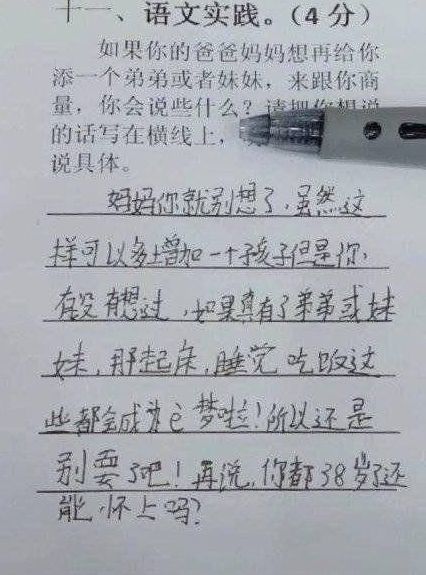 十一、语文实践。(4分)
如果你的爸爸妈妈想再给你
添一个弟弟或者妹妹，来跟你商
量，你会说些什么？请把你想说
的话写在横线上，
说具体。
妈妈你就别想了，虽然这
样可以多增加一个孩子但是你，
有没有想过，如果真有了弟弟或妹
妹，那起床，睡觉吃饭这
些都会成为噩梦啦！所以还是
别要了吧！再说，你都38岁了还
能怀上吗？